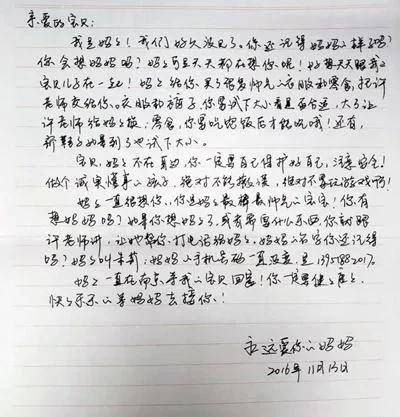 亲爱的宝贝:
我是妈妈!我们好久没见了。你还记得妈妈的样子吗?
你会想妈妈吗?妈妈可是天天都在想你呢!好想天天跟我的
宝贝儿子在一起!妈妈给你买了很多帅气的衣服和零食,托
许老师交给你。衣服和裤子,你要试下大小看是否合适,大了让
许老师给妈妈换;零食,你要吃完饭后才能吃哦!还有,
新鞋子如果到了也试下大小。
宝贝,妈妈不在身边,你一定要自己保护好自己,注意安全!
做个诚实懂事的孩子,绝对不能撒谎,绝对不要玩游戏啊!
妈妈一直很想你,你是妈妈最棒最帅气的宝宝!你有
想妈妈吗?如果你想妈妈了,或者需要什么东西,你就跟
许老师讲,让她帮你打电话给妈妈。妈妈的名字你还记得
吗?妈妈叫朱莉;妈妈的手机号码一直没变,是
妈妈一直在南京等我的宝贝回家!你一定要健健康康
快快乐乐的等妈妈去接你!
永远爱你的妈妈
2016年11月13日